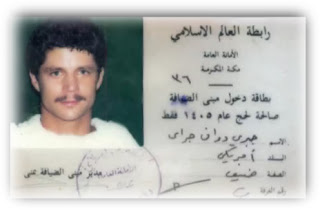 رابطة العالم الاسلامي
الأمانة العامة
مكة المكرمة
٣٦
بطاقة دخول مبنى الضيافة
صالحة لحج عام ١٤٠٥ فقط
الاسم جبرى دواف جراى
البلد أمريكي
الصفة ضيف
رقم الغرفة
مدير مبنى الضيافة بمنى